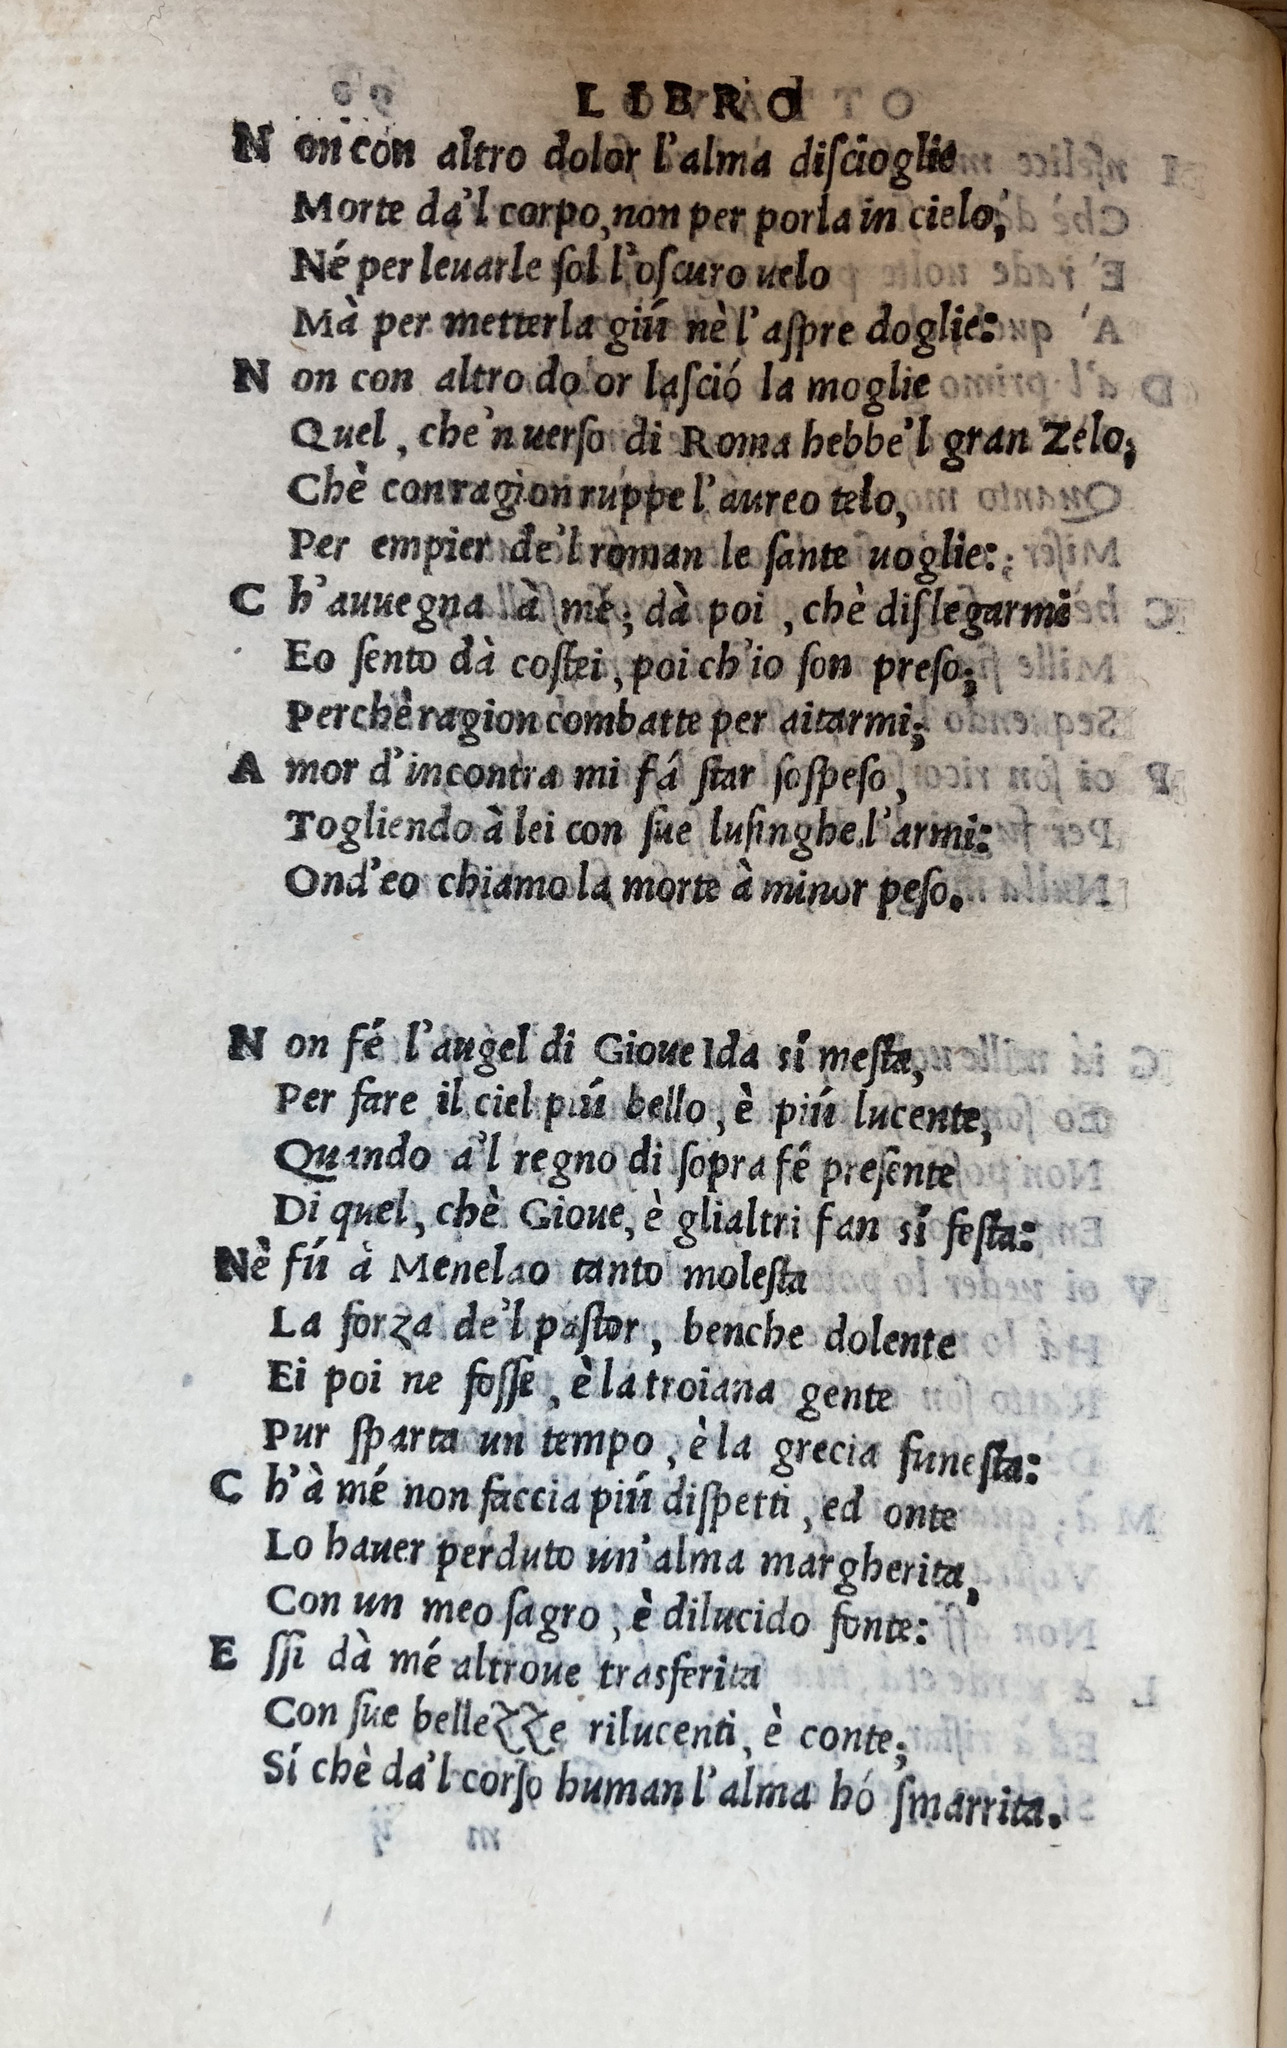 LIBRO
Non con altro dolor l'alma diſcioglie
Morte da'l corpo, non per porla in cielo;
Né per leuarle ſol l'oſcuro uelo
Mà per metterla giú nè l'aſpre doglie:
Non con altro do'or laſció la moglie
Quel, che'n uerſo di Roma hebbe'l gran Zelo;
Chè con ragion ruppe l'aureo telo,
Per empier de'l roman le ſante uoglie:
Ch'auuegna à mé; dà poi, chè diſlegarmi
Eo ſento dà coſtei, poi ch'io ſon preſo;
Perchè ragion combatte per aitarmi;
Amor d'incontra mi fá ſtar ſoſpeſo,
Togliendo à lei con ſue luſinghe l'armi:
Ond'eo chiamo la morte à minor peſo.
Non fé l'augel di Gioue Ida sí meſta,
Per fare il ciel piú bello, è piú lucente,
Quando a'l regno di ſopra fé preſente
Di quel, chè Gioue, è glialtri fan sí feſta:
Nè fú à Menelao tanto moleſta
La forza de'l paſtor, benche dolente
Ei poi ne foſſe, è la troiana gente
Pur ſparta un tempo, è la grecia funeſta:
Ch'à mé non faccia piú diſpetti, ed onte
Lo hauer perduto un'alma margherita,
Con un meo ſagro, è dilucido fonte:
Eſſi dà mé altroue trasferita
Con ſue bellezze rilucenti, è conte;
Sí chè da'l corſo human l'alma hó ſmarrita.